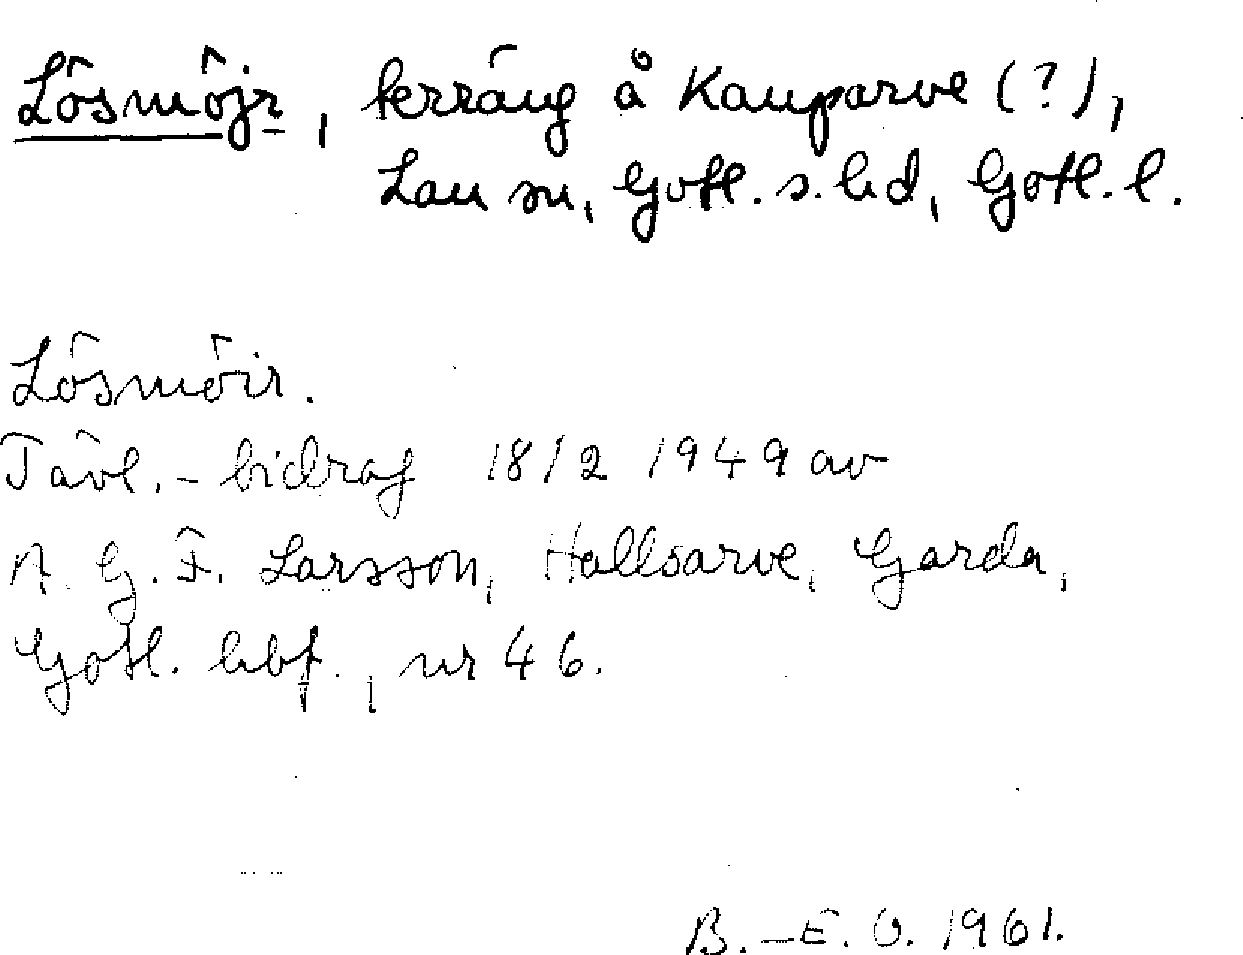 Lösmöjr, terräng å Kauparve (?),
Lau sn, Gotl. s. hd, Gotl. l.
Lösmöir.
Tävl.-bidrag 18/2 1949 av
A. G. F. Larsson, Hallsarve, Garda,
Gotl. hbf., nr 46.
B.-E. O. 1961.